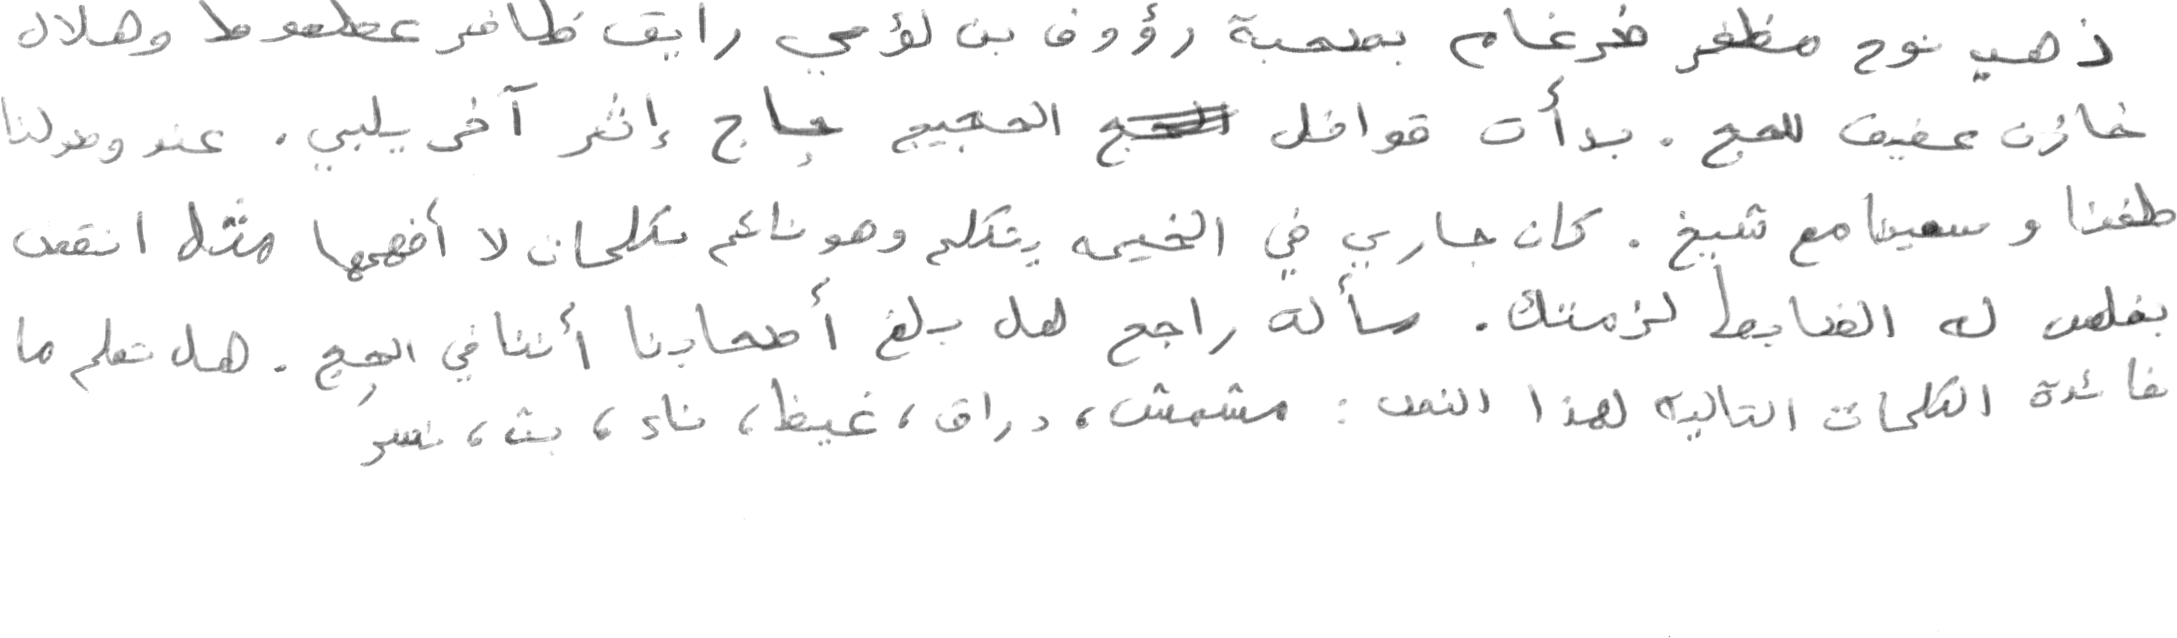 ذهب نوح مظفر ضرغام بصحبة رؤوف بن لؤي رايق ظافر عطعوط وهلال
خازن عفيف للحج . بدأت قوافل الحجيج حاج إثر آخر يلبي . عند وصولنا
طفنا وسعينا مع شيخ . كان جاري في الخيمه يتكلم وهو نائم بكلمات لا أفهمها مثل انقض
له الضابط لزمتك . سألة راجح هل بلغ أصحابنا أننا في الحج . هل تعلم ما
فائدة الكلمات التاليه لهذا النص : مشمش ، دراق ، غيظ ، ناء ، بث ، نسر